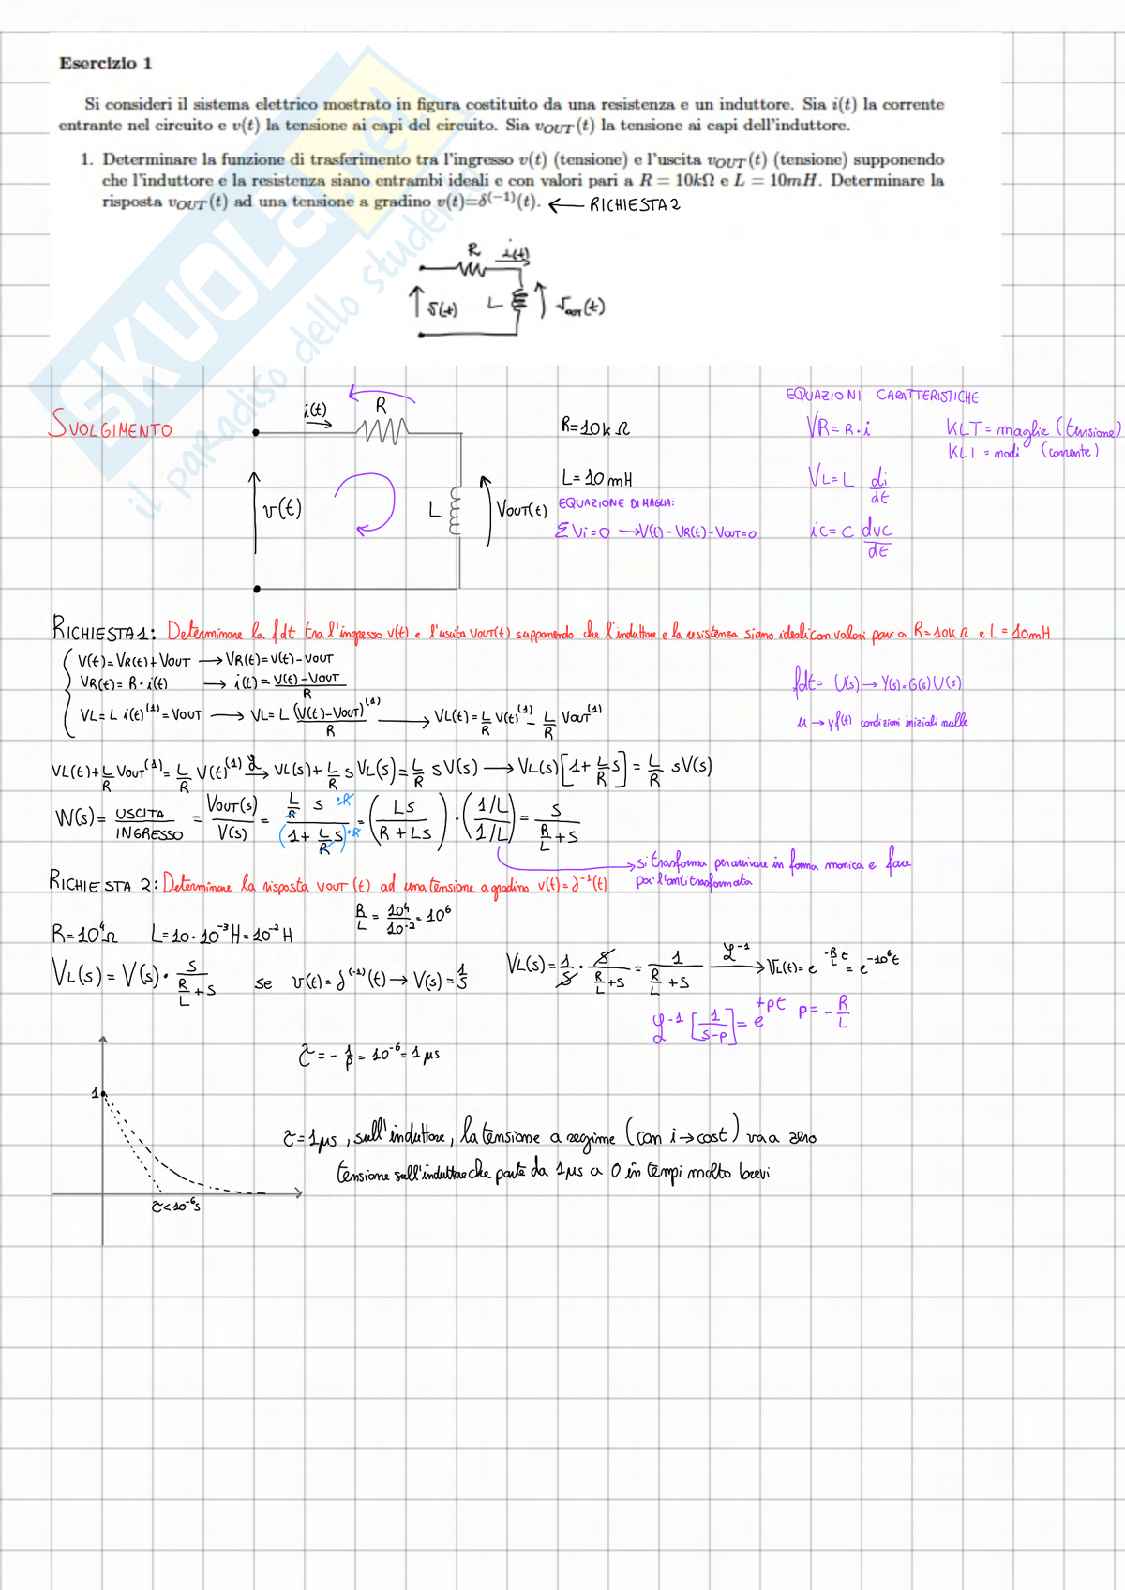 Esercizio 1
Si consideri il sistema elettrico mostrato in figura costituito da una resistenza e un induttore. Sia i(t) la corrente
entrante nel circuito e v(t) la tensione ai capi del circuito. Sia vOUT(t) la tensione ai capi dell'induttore.
1. Determinare la funzione di trasferimento tra l'ingresso v(t) (tensione) e l'uscita vOUT(t) (tensione) supponendo
che l'induttore e la resistenza siano entrambi ideali e con valori pari a R = 10kΩ e L = 10mH. Determinare la
risposta vOUT(t) ad una tensione a gradino v(t)=δ^(-1)(t). ← RICHIESTA 2
R i(t)
v(t) L vOUT(t)
SKUOLA.net
il paradiso dello studente
SVOLGIMENTO
i(t) R
v(t) L VOUT(t)
R=10k Ω
L=10mH
EQUAZIONE DI MAGLIA:
ΣVi=0 → V(t)-VR(t)-VOUT=0
EQUAZIONI CARATTERISTICHE
VR=R·i
VL=L di/dt
iC=C dVC/dt
KLT=maglie (tensione)
KLI=nodi (corrente)
RICHIESTA 1: Determinare la fdt tra l'ingresso v(t) e l'uscita VOUT(t) supponendo che l'induttore e la resistenza siano ideali con valori pari a R=10k Ω e L=10mH
V(t)=VR(t)+VOUT → VR(t)=V(t)-VOUT
VR(t)=R·i(t) → i(t)=V(t)-VOUT/R
VL=L i(t)^(1)=VOUT → VL=L (V(t)-VOUT)^(1)/R → VL(t)=L/R V(t)^(1) - L/R VOUT^(1)
fdt= U(s) → Y(s)=G(s)U(s)
u → yf(t) condizioni iniziali nulle
VL(t)+L/R VOUT^(1)=L/R V(t)^(1) ℒ→ VL(s)+L/R s VL(s)=L/R sV(s) → VL(s)[1+L/R s]=L/R sV(s)
W(s)=USCITA/INGRESSO=VOUT(s)/V(s)=L/R s ·R/(1+L/R s)·R=(Ls/R+Ls)·(1/L/1/L)=s/R/L+s
si trasforma per arrivare in forma monica e fare
poi l'antitrasformata
RICHIESTA 2: Determinare la risposta VOUT(t) ad una tensione a gradino v(t)=δ^-1(t)
R=10^4Ω L=10·10^-3H=10^-2H
R/L=10^4/10^-2=10^6
VL(s)=V(s)·s/R/L+s se v(t)=δ^(-1)(t) → V(s)=1/s
VL(s)=1/s·s/R/L+s=1/R/L+s ℒ^-1→ VL(t)=e^-R/L t=e^-10^6t
ℒ^-1[1/s-p]=e^+pt p=-R/L
τ=-1/p=10^-6=1μs
1
τ=1μs, sull'induttore, la tensione a regime (con i→cost) va a zero
tensione sull'induttore che parte da 1μs a 0 in tempi molto brevi
τ<10^-6s